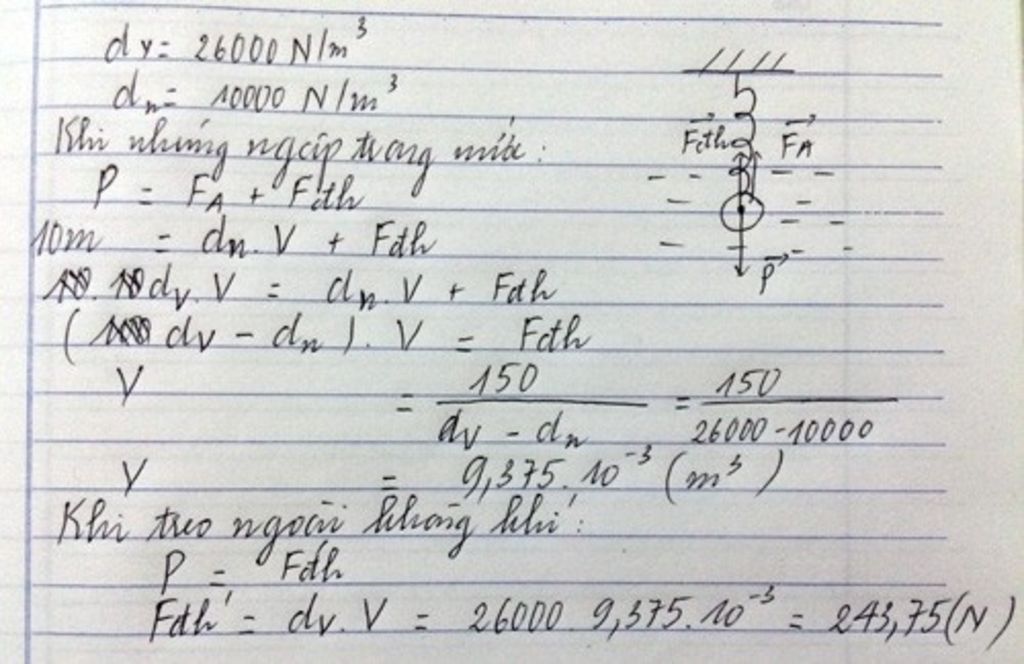 dv = 26000 N/m³
dn = 10000 N/m³
Khi nhúng ngập trong nước:
P = FA + Fđh
10m = dn. V + Fđh
dv. V = dn. V + Fđh
( dv - dn ). V = Fđh
V = 150 / dv - dn = 150 / 26000 - 10000
V = 9,375. 10⁻³ (m³)
Khi treo ngoài không khí:
P = Fđh
Fđh' = dv. V = 26000. 9,375. 10⁻³ = 243,75(N)
Fđh
FA
P